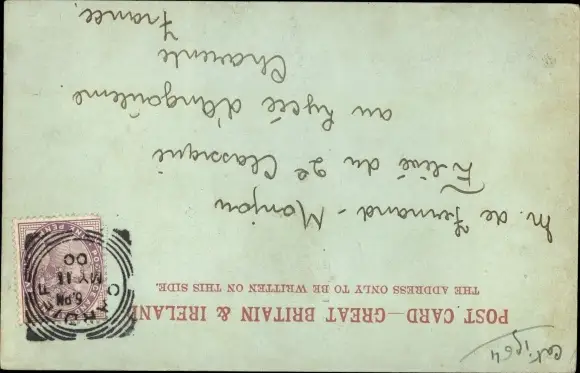 POST CARD—GREAT BRITAIN & IRELAND
THE ADDRESS ONLY TO BE WRITTEN ON THIS SIDE.
CARDIFF
5.PM
MY 11
00
M. de Fernand-Monjou
Élève du 2e Classique
au Lycée d'Angoulème
Charente
France.